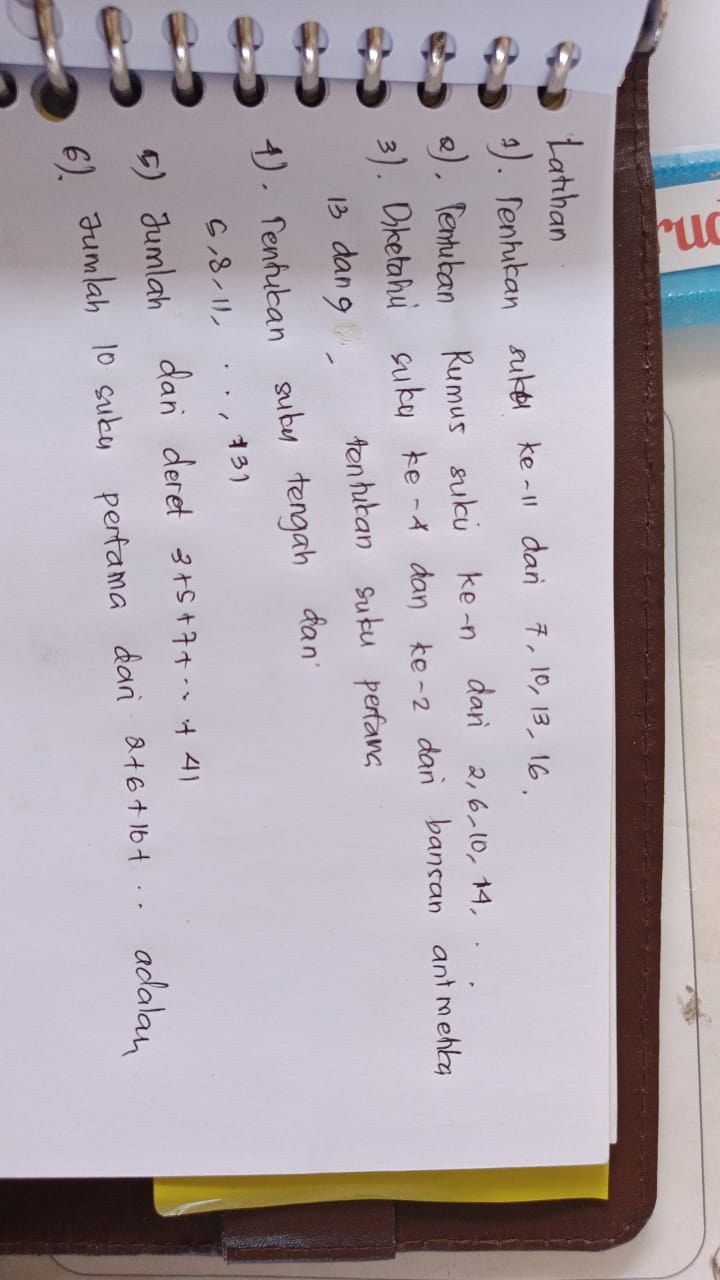 Latihan
1). Tentukan suku ke-11 dari 7, 10, 13, 16.
2). Tentukan Rumus suku ke-n dari 2, 6, 10, 14, . .
3). Diketahui suku ke-4 dan ke-2 dari barisan aritmetika
13 dan 9, tentukan suku pertama
4). Tentukan suku tengah dari
5, 8, 11, . . ., 131
5) Jumlah dari deret 3+5+7+...+41
6). Jumlah 10 suku pertama dari 2+6+10+.. adalah